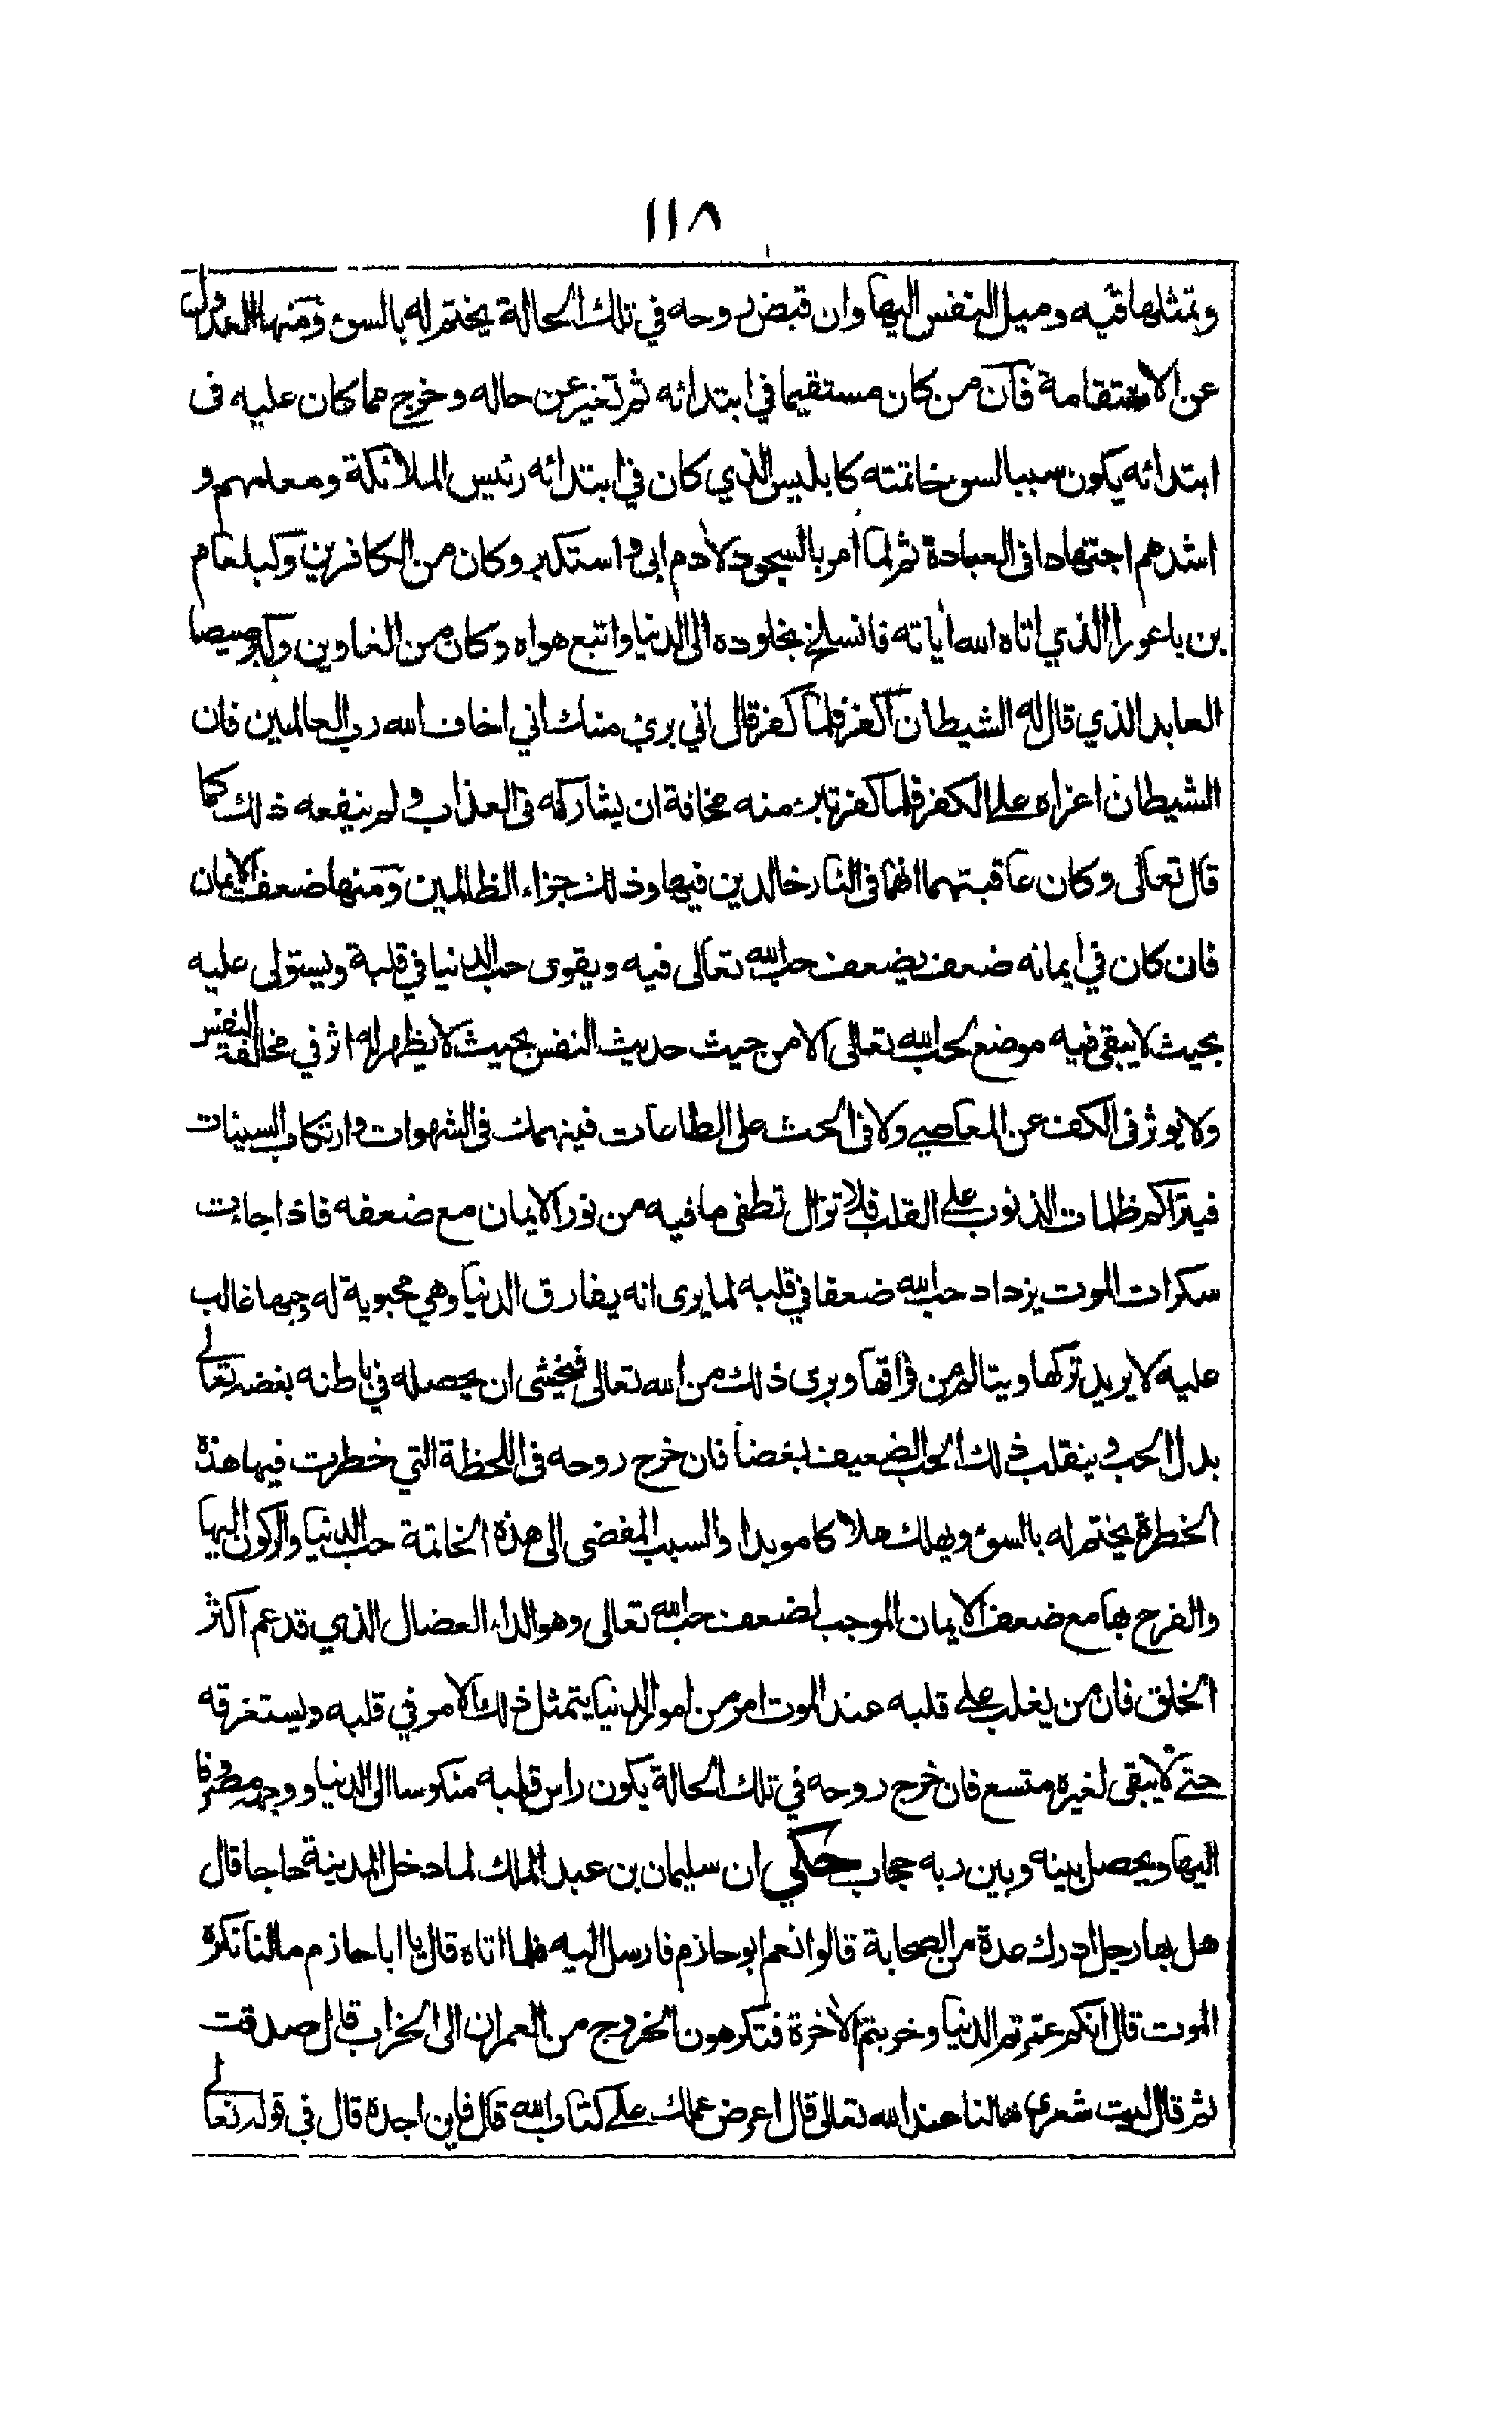 ١١٨
وتمثلها فيه وميل النفس اليها وان قبض روحه في تلك الحالة يختم له بالسوء ومنها العدول
عن الاستقامة فان من كان مستقيما في ابتدائه ثم تغير عن حاله وخرج مما كان عليه فى
ابتدائه يكون سببا لسوء خاتمته كابليس الذي كان في ابتدائه رئيس الملائكة ومعلمهم و
اشدهم اجتهادا فى العبادة ثم لما امر بالسجود لادم ابى واستكبر وكان من الكافرين وكبلعام
بن باعورا الذي اتاه الله اياته فانسلخ بخلوده الى الدنيا واتبع هواه وكان من الغاوين وكبرصيصا
العابد الذي قال له الشيطان اكفر فلما كفر قال اني برئ منك اني اخاف الله رب العالمين فان
الشيطان اغراه على الكفر فلما كفر تبرء منه مخافة ان يشاركه فى العذاب ولم ينفعه ذلك كما
قال تعالى وكان عاقبتهما انهما فى النار خالدين فيها وذلك جزاء الظالمين ومنها ضعف الايمان
فان كان في ايمانه ضعف يضعف حب الله تعالى فيه ويقوى حب الدنيا في قلبة ويستولى عليه
بحيث لا يبقى فيه موضع لحب الله تعالى الا من حيث حديث النفس بحيث لا يظهر له اثر في مخالفة النفس
ولا يوثر فى الكف عن المعاصي ولا فى الحث على الطاعات فينهمك فى الشهوات وارتكاب السيئات
فيتراكم ظلمات الذنوب على القلب فلا تزال تطفى ما فيه من نور الايمان مع ضعفه فاذا جاءت
سكرات الموت يزداد حب الله ضعفا في قلبه لما يرى انه يفارق الدنيا وهي محبوبة له وحبها غالب
عليه لا يريد تركها ويتالم من فراقها ويرى ذلك من الله تعالى فيخشى ان يحصل له في باطنه بغضه تعالى
بدل الحب وينقلب ذلك الحب الضعيف بغضا فان خرج روحه فى اللحظة التي خطرت فيها هذه
الخطرة يختم له بالسوء ويهلك هلاكا موبدا والسبب المفضى الى هذه الخاتمة حب الدنيا والركون اليها
والفرح بها مع ضعف الايمان الموجب لضعف حب الله تعالى وهو الداء العضال الذي قد عم اكثر
الخلق فان من يغلب على قلبه عند الموت امر من امور الدنيا يتمثل ذلك الامر في قلبه ويستغرقه
حتى لا يبقى لغيره متسع فان خرج روحه في تلك الحالة يكون راس قلبه منكوسا الى الدنيا ووجهه مصروفا
اليها ويحصل بينه وبين ربه حجاب حكي ان سليمان بن عبد الملك لما دخل المدينة حاجا قال
هل بها رجل ادرك عدة من الصحابة قالوا نعم ابو حازم فارسل اليه فلما اتاه قال يا ابا حازم مالنا نكره
الموت قال انكم عمرتم الدنيا وخربتم الاخرة فتكرهون الخروج من العمران الى الخراب قال صدقت
ثم قال ليت شعري مالنا عند الله تعالى قال اعرض عملك على كتاب الله قال فاين اجده قال في قوله تعالى